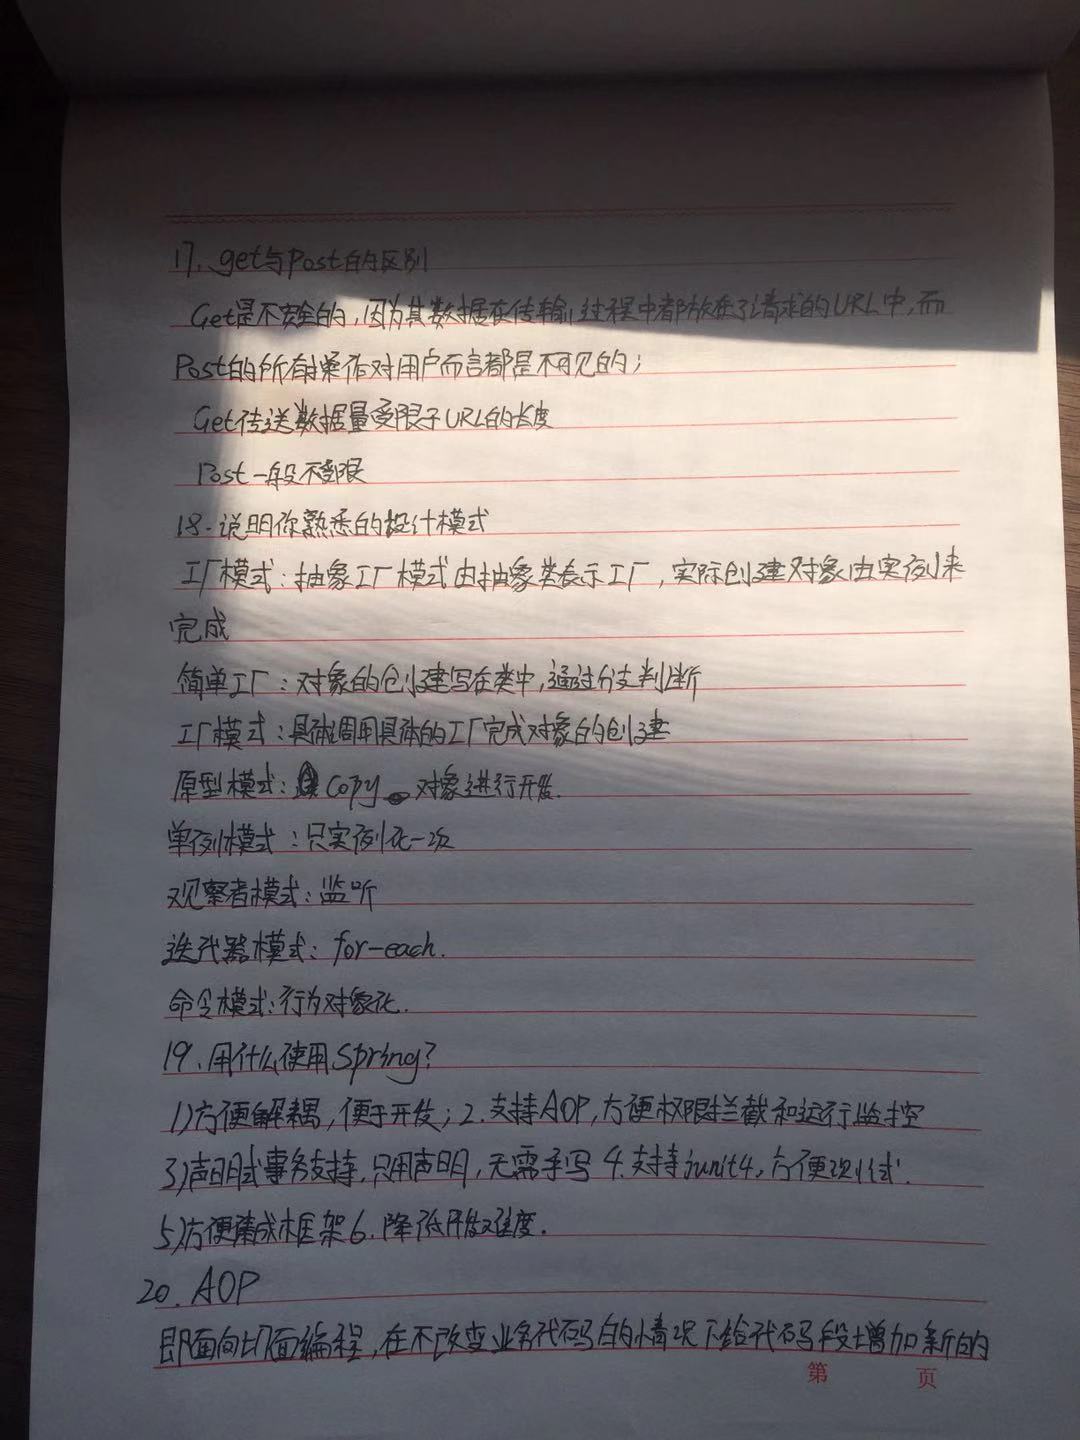 17、get与Post的区别
Get是不安全的,因为其数据在传输过程中都放在了请求的URL中,而
Post的所有操作对用户而言都是不可见的;
Get传送数据量受限于URL的长度
Post一般不受限
18.说明你熟悉的设计模式
工厂模式:抽象工厂模式由抽象类表示工厂,实际创建对象由实例来
完成
简单工厂:对象的创建写在类中,通过分支判断
工厂模式:具体调用具体的工厂完成对象的创建
原型模式: copy 对象进行开发.
单例模式:只实例化一次
观察者模式:监听
迭代器模式:for-each.
命令模式:行为对象化.
19、用什么使用Spring?
1)方便解耦,便于开发;2.支持AOP,方便权限拦截和运行监控
3)声明式事务支持,只用声明,无需手写 4.支持junit4,方便测试.
5)方便集成框架6.降低开发难度.
20、AOP
即面向切面编程,在不改变业务代码的情况下给代码段增加新的
第 页